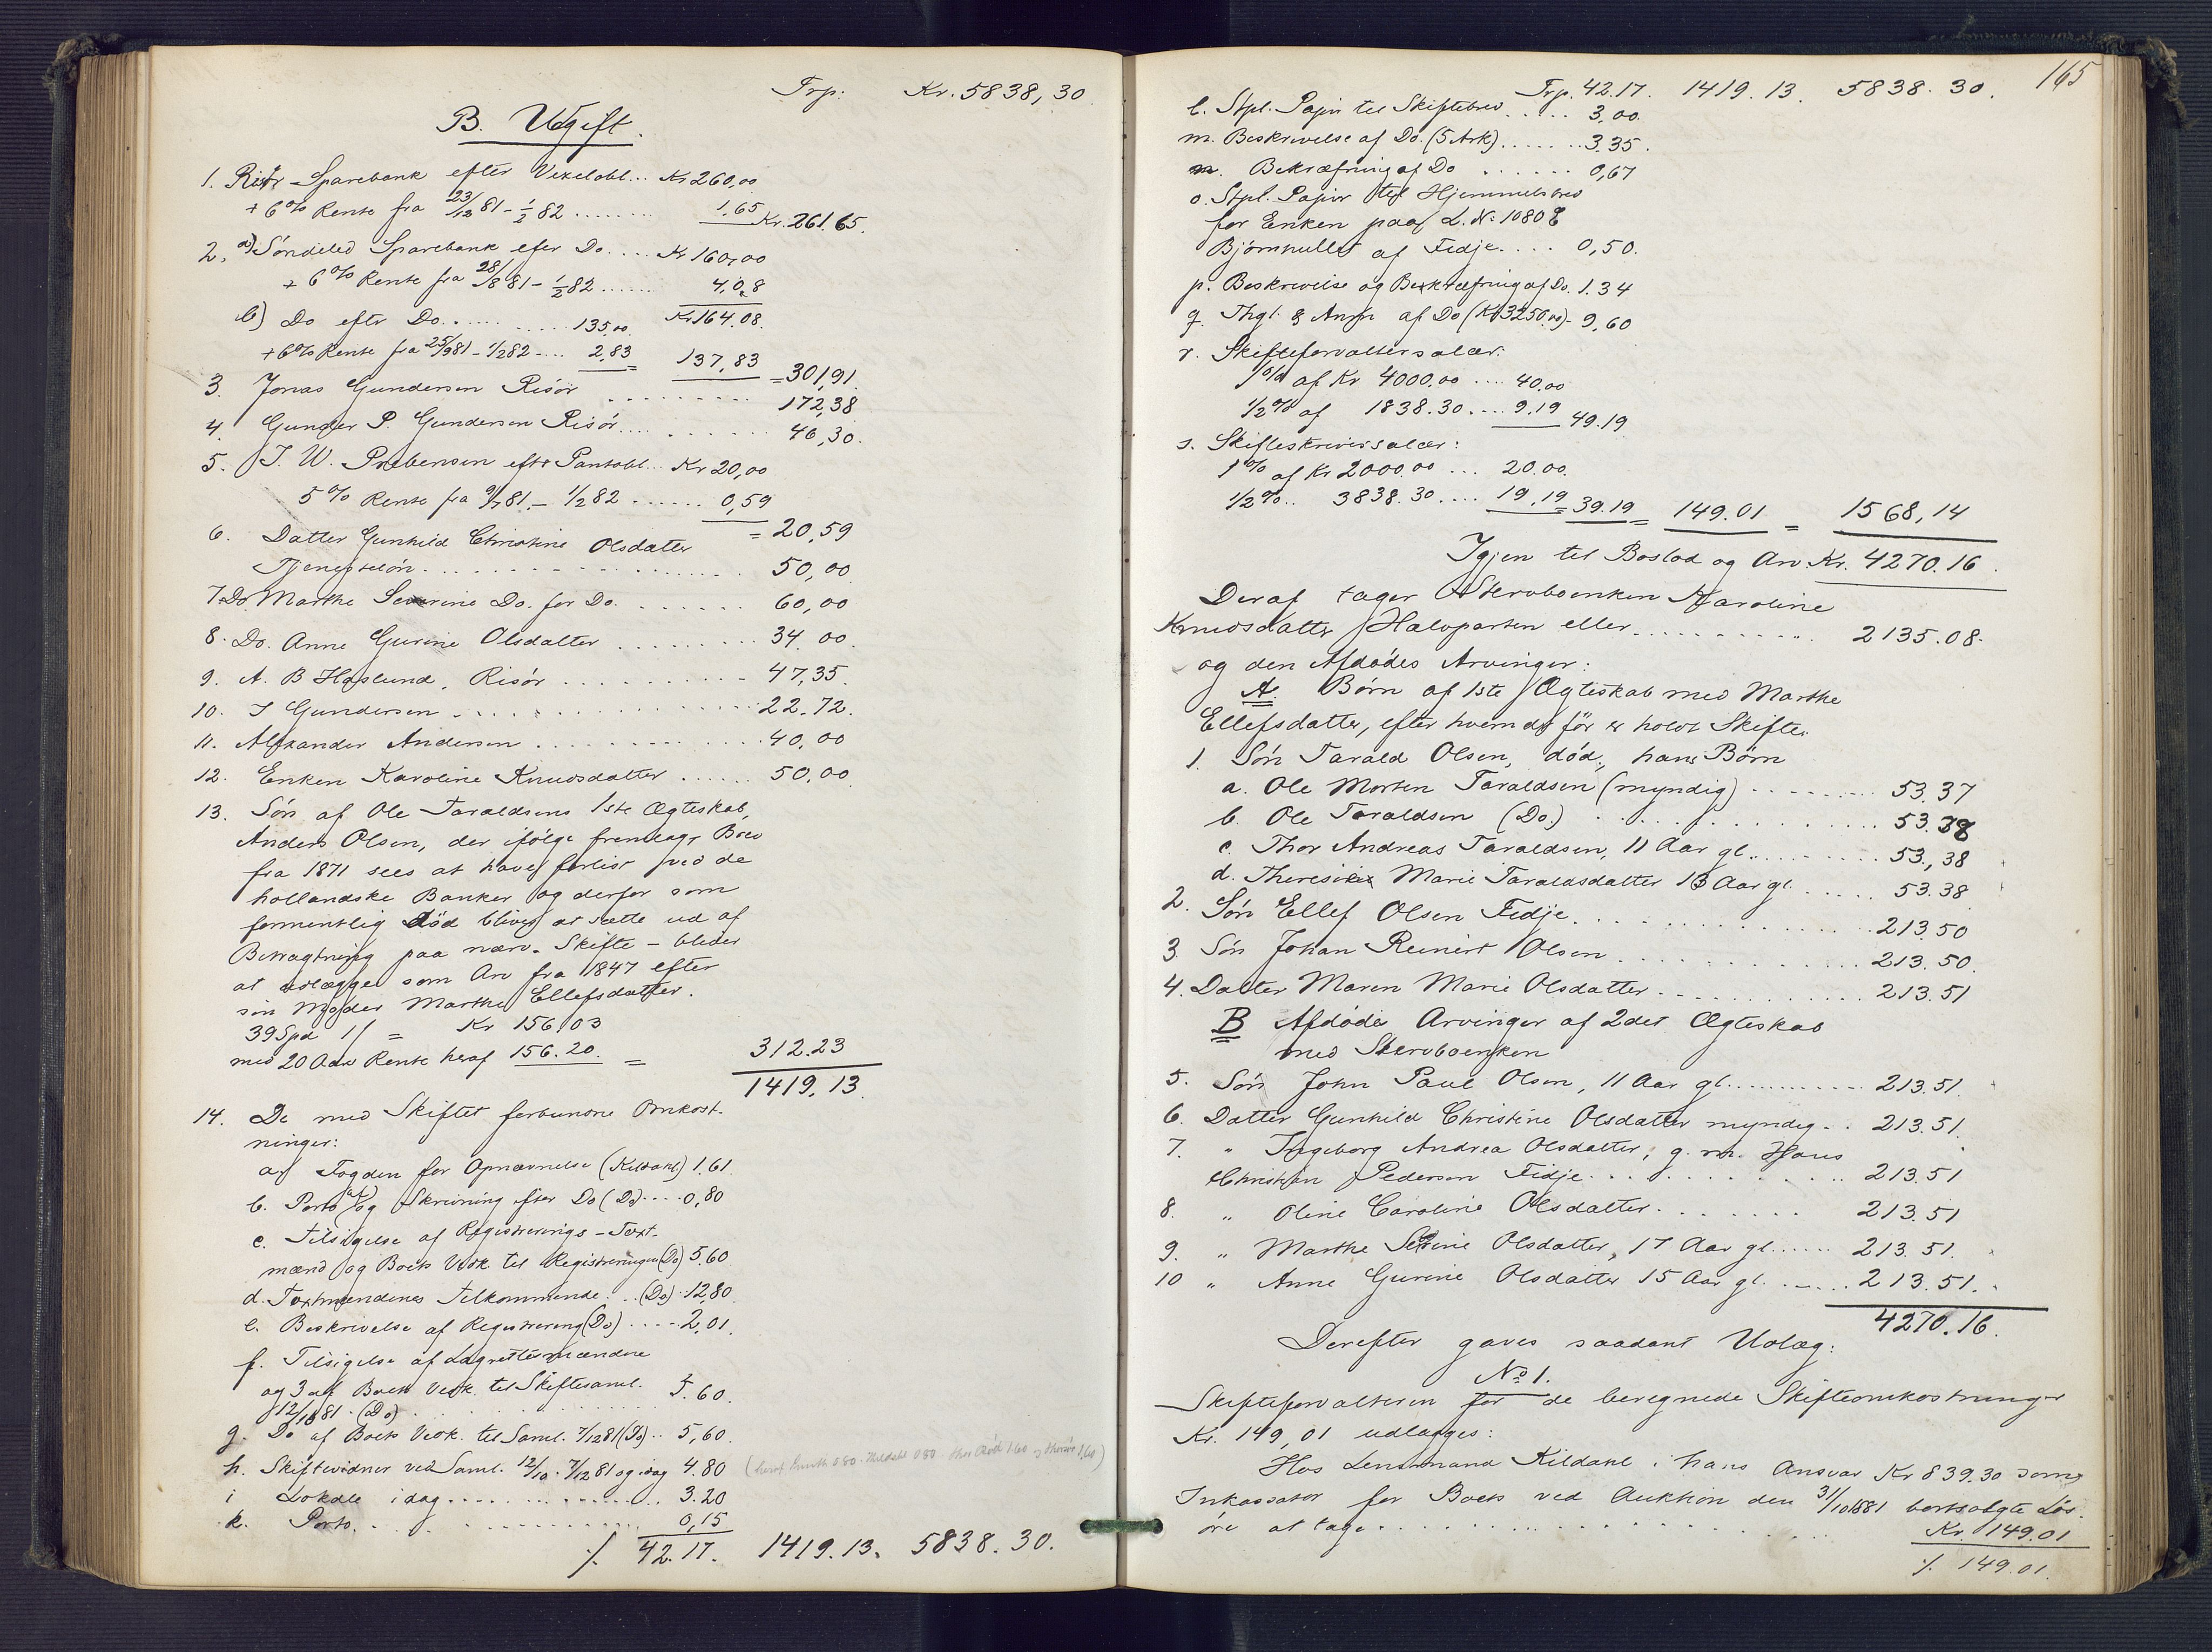 Trp: Kr. 5838,30
B. Udgift.
1. Risør Sparebank efter Vexelobl... Kr 260,00
+ 6% Rente fra 23/12 81 - 1/2 82 ........ 1,65 Kr. 261,65.
2. a) Søndeled Sparebank efter Do.... Kr 160,00
+ 6% Rente fra 28/8 81 - 1/2 82 ...... 4,08
Kr 164.08.
b) Do efter Do. .... 135,00
+ 6% Rente fra 25/9 81 - 1/2 82 .... 2,83 = 137,83 = 301,91.
3. Jonas Gundersen Risør ........ 172,38
4. Gunder P. Gundersen Risør .... 46,30.
5. J. W. Prebensen efter Pantobl... Kr 20,00
5% Rente fra 9/7 81. - 1/2 82 ...... 0,59
= 20,59
6. Datter Gunhild Christine Olsdatter
Tjenesteløn .......... 50,00
7. Do. Marthe Severine Do. for Do. ...... 60,00
8. Do. Anne Gurine Olsdatter ...... 34.00.
9. A. B Haslund, Risør .......... 47,35.
10. J Gundersen .......... 22.72.
11. Alexander Andersen .......... 40,00
12. Enken Karoline Knudsdatter ...... 50.00
13. Søn af Ole Taraldsens 1ste Ægteskab,
Anders Olsen, der ifølge fremlagt Brev
fra 1871 sees at have forlist ved de
hollandske Banker og derfor som
formentlig død bliver at sætte ud af
Betragtning paa nærv. Skifte - bliver
at udlægge som Arv fra 1847 efter
sin Moder Marthe Ellefsdatter.
39 Spd 1 ſ = Kr 156,03
med 20 Aars Rente heraf 156.20. = 312.23
1419.13.
14. De med Skiftet forbundne Omkost-
ninger:
a, Fogden for Opnævnelse (Kildahl) 1.61.
b. Porto (af) og Skrivning efter Do (Do) .... 0,80
c. Tilsigelse af Registrerings-Taxt-
mænd og Boets Vedk. til Registreringen (Do) 5.60
d. Taxtmændenes Tilkommende. .. (Do) . 12,80.
e. Beskrivelse af Registrering (Do) .... 2,01.
f. Tilsigelse af Lagrettemændene
og 3 af Boets Vedk. til Skiftesaml.
12/10 81. (Do) .......... 5.60.
g. Do af Boets Vedk. til Saml. 7/12 81 (Do) .. 5,60.
h. Skiftevidner ved Saml. 12/10. 7/12 81 og idag 4.80
i Lokale idag .......... 3.20
k. Porto .......... 0,15
./. 42.17. 1419.13. 5838.30.
165
Trp. 42.17. 1419.13. 5838.30.
l. Stpl. Papir til Skiftebrev ..... 3,00.
m. Beskrivelse af Do. (5 Ark) ...... 3.35.
n. Bekræftning af Do ...... 0,67
o. Stpl. Papir til Hjemmelsbrev
for Enken paa L. No 1080 b
Bjørnhullet af Fidje .... 0,50.
p. Beskrivelse og Bekræftning af Do. 1.34
q. Thgl. & Anm af Do (Kr 3250,00) - 9,60
r. Skifteforvaltersalær:
1% af Kr 4000,00 .... 40,00
1/2 % af 1838.30 .... 9.19 49.19
s. Skifteskriversalær:
1% af Kr 2000,00 ... 20.00.
1/2 % .. 3838.30 .... 19,19 = 39.19 = 149.01 = 1568,14
Igjen til Boslod og Arv. Kr. 4270.16.
Deraf tager Stervboenken Karoline
Knudsdatter Halvparten eller .......... 2135.08.
og den Afdødes Arvinger:
A. Børn af 1ste Ægteskab med Marthe
Ellefsdatter, efter hvem der før er holdt Skifte.
1. Søn Tarald Olsen, død, hans Børn
a. Ole Morten Taraldsen (myndig) ........ 53.37
b. Ole Taraldsen (Do.) .......... 53.38
c. Thor Andreas Taraldsen, 11 Aar gl. ........ 53,38
d. Theresie Marie Taraldsdatter 13 Aar gl. ..... 53.38
2. Søn Ellef Olsen Fidje .......... 213.50
3. Søn Johan Reinert Olsen .......... 213.50.
4. Datter Maren Marie Olsdatter .......... 213.51
B Afdødes Arvinger af 2det Ægteskab
med Stervboenken
5. Søn John Paul Olsen, 11 Aar gl. ........ 213.51.
6. Datter Gunhild Christine Olsdatter myndig . . 213.51.
7. " Ingeborg Andrea Olsdatter, g. m. Hans
Christian Pedersen Fidje .......... 213.51
8. " Oline Caroline Olsdatter ....... 213.51
9. " Marthe Severine Olsdatter, 17 Aar gl. ..... 213.51.
10 " Anne Gurine Olsdatter 15 Aar gl. ..... 213.51.
4270.16.
Derefter gaves saadant Udlæg:
No 1.
Skifteforvalteren for de beregnede Skifteomkostninger
Kr. 149,01 udlægges:
Hos Lensmand Kildahl i hans Ansvar Kr 839.30 som
Inkassator for Boets ved Auktion den 31/10 1881 bortsolgte Løs-
øre at tage .......... Kr. 149.01
./. 149.01.